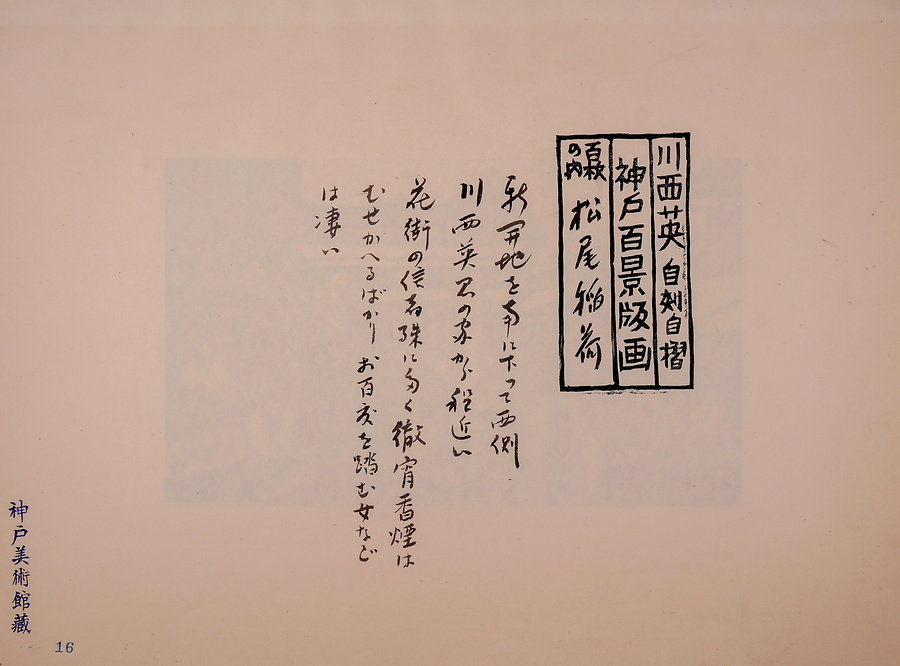 川西英 自刻自摺
神戸百景版画
百枚の内 松尾稲荷
新開地を南に下つて西側
川西英君の家から程近い
花街の信者殊に多く徹宵香煙は
むせかへるばかり お百度を踏む女など
は凄い
神戸美術館蔵
16